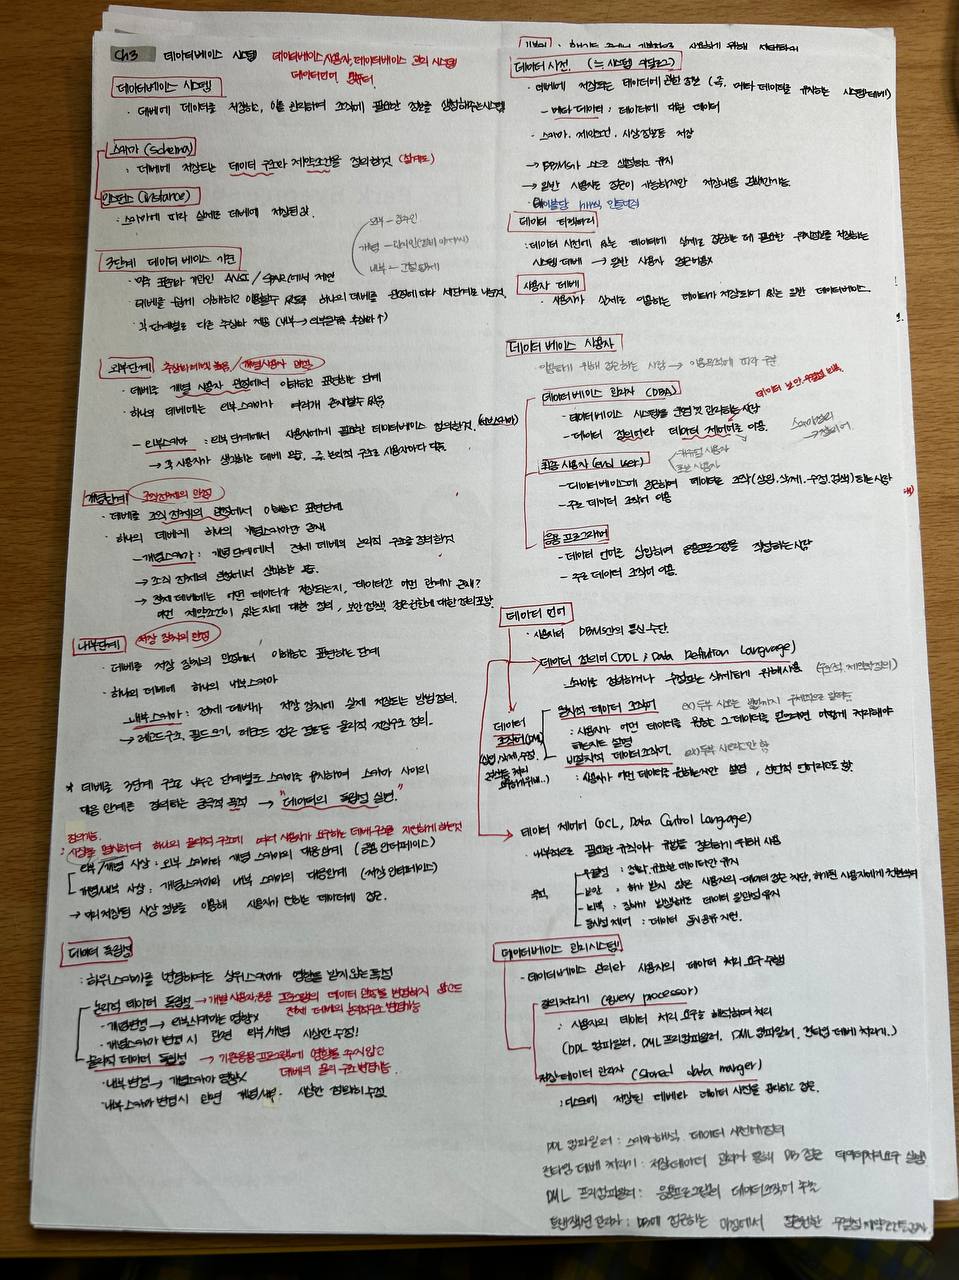 Ch3 데이터베이스 시스템 데이터베이스, 사용자, 데이터베이스 관리 시스템
데이터언어, 컴퓨터
데이터베이스 시스템
· 데베에 데이터를 저장하고, 이를 관리하여 조직에 필요한 정보를 생성해주는 시스템
스키마 (schema)
: 데베에 저장되는 데이터 구조와 제약조건을 정의한것 (설계도)
인스턴스 (instance)
: 스키마에 따라 실제로 데베에 저장된 값.
3단계 데이터 베이스 구조
외부 -
개념 -
내부 -
· 미국 표준화 기관인 ANSI / SPARC에서 제안
· 데베를 쉽게 이해하고 이용할수 있도록 하나의 데베를 관점에 따라 세단계로 나눈것.
· 각 단계별로 다른 추상화 제공 (내부 → 외부갈수록 추상화 ↑)
외부단계 / 개별 사용자 관점
· 데베를 개별 사용자 관점에서 이해하고 표현하는 단계
· 하나의 데베에는 외부 스키마가 여러개 존재할수 있음.
- 외부스키마 : 외부 단계에서 사용자에게 필요한 데이터베이스 정의한것. (서브스키마)
→ 각 사용자가 생각하는 데베 모습, 즉 논리적 구조로 사용자마다 다름
개념단계 조직 전체의 관점
· 데베를 조직 전체의 관점에서 이해하고 표현하는 단계
· 하나의 데베에 하나의 개념스키마만 존재
- 개념스키마 : 개념 단계에서 전체 데베의 논리적 구조를 정의한것
→ 조직 전체의 관점에서 생각한 모습.
→ 전체 데베에는 어떤 데이터가 저장되는지, 데이터간 어떤 관계가 존재?
어떤 제약조건이 있는지에 대한 정의, 보안 정책, 접근권한에 대한 정의 포함.
내부단계 저장 장치의 관점
· 데베를 저장 장치의 관점에서 이해하고 표현하는 단계
· 하나의 데베에 하나의 내부스키마
- 내부 스키마 : 전체 데베가 저장 장치에 실제 저장되는 방법 정의.
→ 레코드구조, 필드 크기, 레코드 접근 경로등 물리적 저장구조 정의.
* 데베를 3단계 구조로 나누고 단계별로 스키마를 유지하며 스키마 사이의
대응 관계를 정의하는 궁극적 목적 → "데이터의 독립성 실현."
: 사상을 하나의 물리적 구조에 여러 사용자가 요구하는 데베 구조를 지원하게 하는것
외부/개념 사상 : 외부 스키마와 개념 스키마의 대응관계 (응용 인터페이스)
개념/내부 사상 : 개념스키마와 내부 스키마의 대응관계 (저장 인터페이스)
→ 미리 저장된 사상 정보를 이용해 사용자가 원하는 데이터에 접근.
데이터 독립성
: 하위 스키마를 변경하여도 상위스키마가 영향을 받지 않는 특성
논리적 데이터 독립성 → 개별 사용자, 응용 프로그램의 데이터 변경하지 않고도
전체 데베의 논리적구조 변경가능
· 개념변경 → 외부스키마는 영향X
· 개념스키마 변경 시 관련 외부/개념 사상만 수정!
물리적 데이터 독립성 → 기존응용프로그램에 영향을 주지않고
데베의 물리적 구조 변경가능.
· 내부 변경 → 개념스키마 영향X
· 내부 스키마 변경시 관련 개념/내부 사상만 정확히 수정
데이터 사전 (≒ 시스템 카탈로그)
· 데베에 저장되는 데이터에 관한 정보 (즉, 메타 데이터를 유지하는 시스템 데베)
- 메타 데이터 : 데이터에 대한 데이터
· 스키마, 제약조건, 사상정보등 저장
→ DBMS가 스스로 생성하고 유지
→ 일반 사용자도 접근이 가능하지만 저장내용 검색만가능.
데이터 디렉터리
: 데이터 사전에 있는 데이터에 실제로 접근하는 데 필요한 위치정보를 저장하는
시스템 데베 → 일반 사용자 접근허용X
사용자 데베
· 사용자가 실제로 이용하는 데이터가 저장되어 있는 일반 데이터베이스.
데이터 베이스 사용자
이용하기 위해 접근하는 사람 → 이용목적에 따라 구분
데이터베이스 관리자 (DBA)
- 데이터베이스 시스템을 운영 및 관리하는 사람
- 데이터 정의어와 데이터 제어어로 이용.
최종 사용자 (end user)
캐주얼 사용자
초보 사용자
- 데이터베이스에 접근하여 데이터를 조작 (삽입, 삭제, 수정, 검색) 하는 사람
- 주로 데이터 조작어 이용
응용 프로그래머
- 데이터 언어를 삽입하여 응용프로그램을 작성하는 사람
- 주로 데이터 조작어 이용.
데이터 언어
· 사용자와 DBMS간의 통신 수단.
데이터 정의어 (DDL ; Data Definition Language)
스키마를 정의하거나 수정 또는 삭제하기 위해 사용
데이터
조작어 (DML)
(삽입, 삭제, 수정,
절차적 데이터 조작어
: 사용자가 어떤 데이터를 원하고 그 데이터를 얻으려면 어떻게 처리해야
하는지도 설명
비절차적 데이터조작어.
: 사용자가 어떤 데이터를 원하는지만 설명, 선언적 언어라고도 함.
데이터 제어어 (DCL, Data Control Language)
· 내부적으로 필요한 규칙이나 기법을 정의하기 위해 사용
목적
무결성 : 정확, 유효한 데이터만 유지
보안 : 허가 받지 않은 사용자의 데이터 접근 차단, 허가된 사용자에게 권한부여
회복 : 장애가 발생해도 데이터 일관성 유지
동시성 제어 : 데이터 동시 공유 지원.
데이터베이스 관리시스템
- 데이터베이스 관리와 사용자의 데이터 처리 요구 수행
질의처리기 (query processor)
: 사용자의 데이터 처리 요구를 해석하여 처리
(DDL 컴파일러, DML 프리컴파일러, DML 컴파일러, 런타임 데베 처리기,)
저장 데이터 관리자 (stored data manger)
: 디스크에 저장된 데베와 데이터 사전을 관리하고 접근.
DDL 컴파일러 : 스키마 해석. 데이터 사전에 저장
런타임 데베 처리기 : 저장데이터 관리자 통해 DB 접근
DML 프리컴파일러 : 응용프로그램의 데이터조작어 추출
트랜잭션 관리자 : DB에 접근하는 과정에서